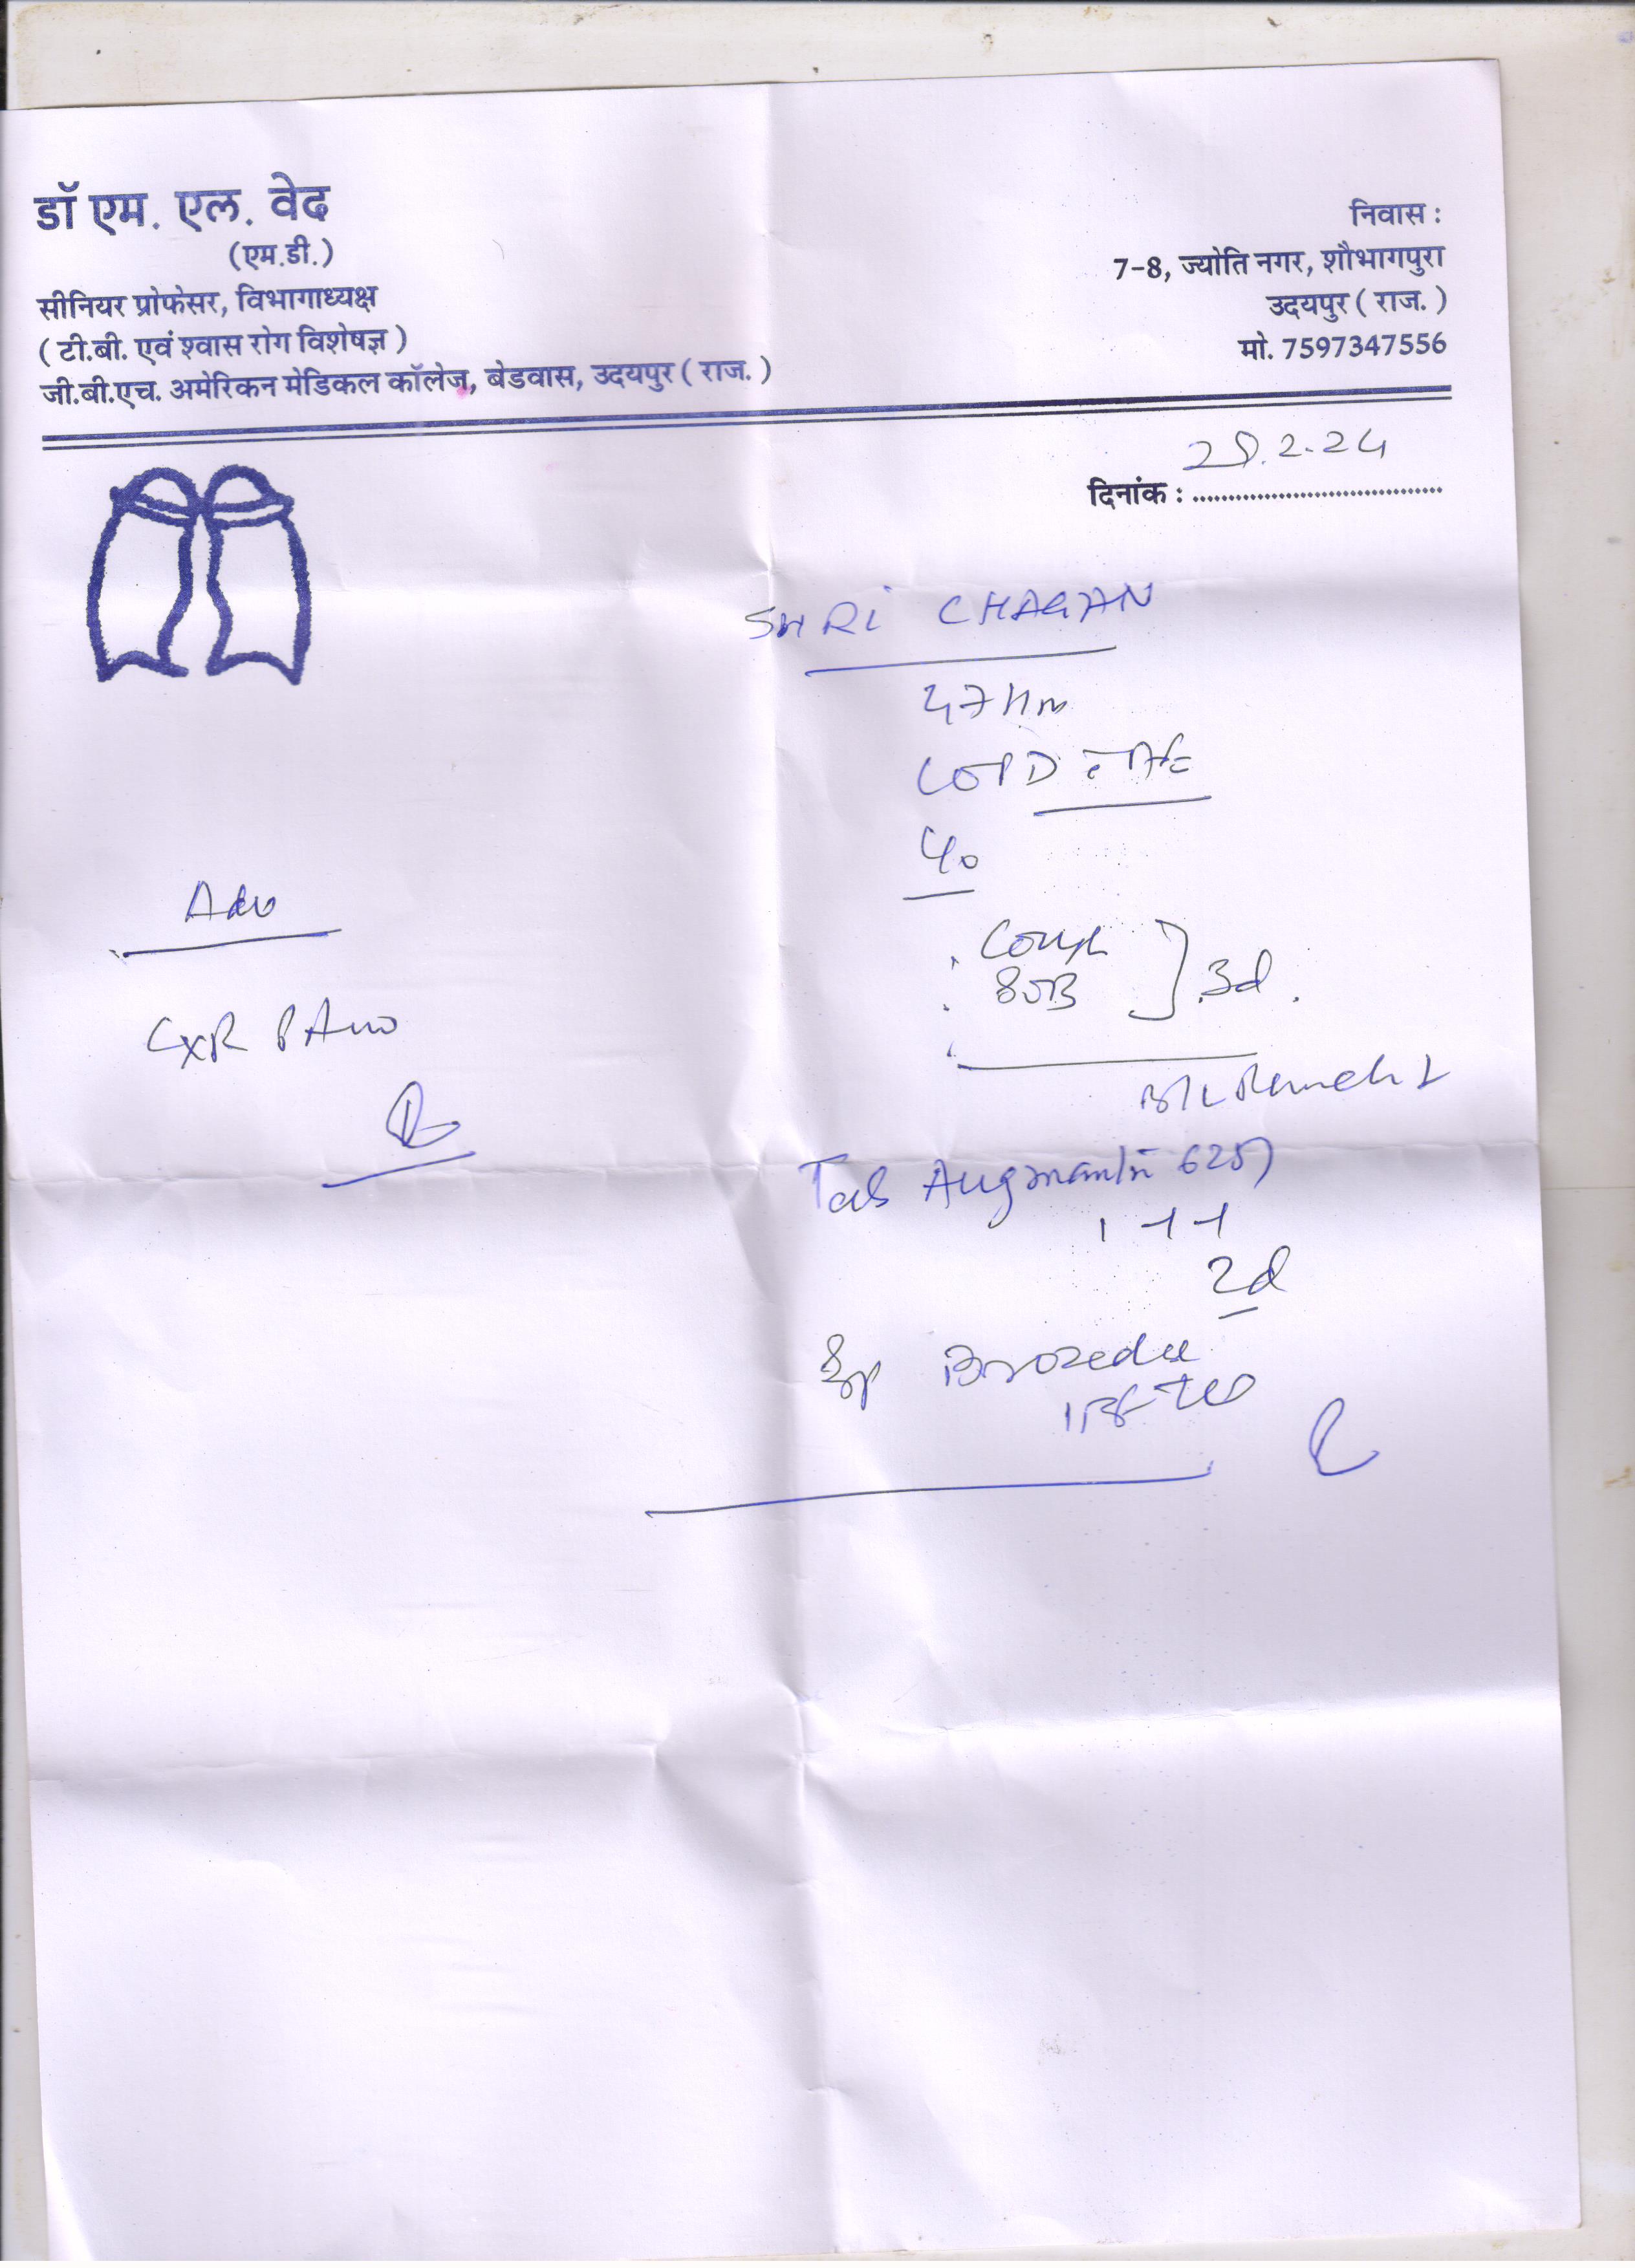 डॉ एम. एल. वेद
(एम.डी.)
सीनियर प्रोफेसर, विभागाध्यक्ष
( टी.बी. एवं श्वास रोग विशेषज्ञ )
जी.बी.एच. अमेरिकन मेडिकल कॉलेज, बेडवास, उदयपुर ( राज. )
निवास :
7-8, ज्योति नगर, शौभागपुरा
उदयपुर ( राज. )
मो. 7597347556
दिनांक : 28.2.24
SHRI CHAGAN
COPD
C/o
Cough
SOB } 3d.
Adv
CXR PA
Tab Augmentin 625
1-1-1
2d
Syp Brozedex